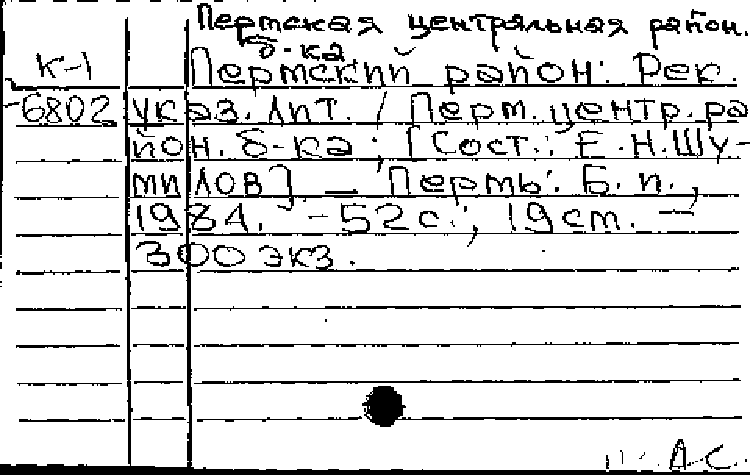 Пермская центральная район.
б-ка
К-1 Пермский район: Рек.
-6802 указ. лит. / Перм. центр. ра
йон. б-ка; [Сост.: Е.Н.Шу-
милов] — Пермь: Б.и.,
1984. - 52 с.; 19 cm. —
300 экз.